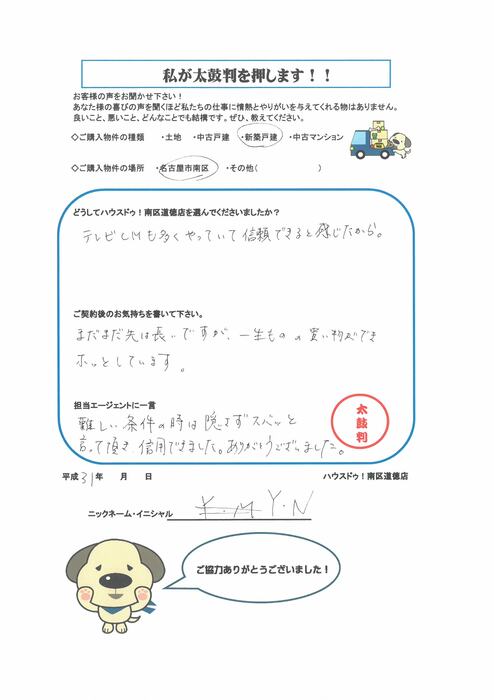 私が太鼓判を押します！！
お客様の声をお聞かせ下さい！
あなた様の喜びの声を聞くほど私たちの仕事に情熱とやりがいを与えてくれる物はありません。
良いこと、悪いこと、どんなことでも結構です。ぜひ、教えてください。
◇ご購入物件の種類　・土地　・中古戸建　・新築戸建　・中古マンション
◇ご購入物件の場所　・名古屋市南区　・その他(　　　　　　)
どうしてハウスドゥ！南区道徳店を選んでくださいましたか？
テレビCMも多くやっていて信頼できると感じたから。
ご契約後のお気持ちを書いて下さい。
まだまだ先は長いですが、一生ものの買い物ができ
ホッとしています。
担当エージェントに一言
難しい条件の時は隠さずズバッと
言って頂き信用できました。ありがとうございました。
太鼓判
平成31年　月　日　ハウスドゥ！南区道徳店
ニックネーム・イニシャル　Y・N
ご協力ありがとうございました！